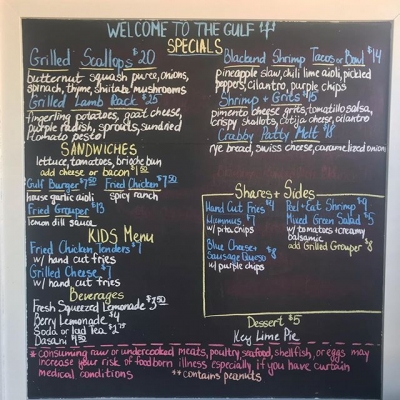 WELCOME TO THE GULF
SPECIALS
Grilled Scallops $20
butternut squash puree, onions,
spinach, thyme, shiitake mushrooms
Grilled Lamb Rack $25
fingerling potatoes, goat cheese,
purple radish, sprouts, sundried
tomato pesto
Blackend Shrimp Tacos or Bowl $14
pineapple slaw, chili lime aioli, pickled
peppers, cilantro, purple chips
Shrimp + Grits $15
pimento cheese grits, tomatillo salsa,
crispy shallots, cotija cheese, cilantro
Crabby Patty Melt $18
rye bread, swiss cheese, caramelized onions
SANDWICHES
lettuce, tomatoes, brioche bun
add cheese or bacon $1.50
Gulf Burger $7.50
house garlic aioli
Fried Chicken $7.50
spicy ranch
Fried Grouper $13
lemon dill sauce
KIDS Menu
Fried Chicken Tenders $7
w/ hand cut fries
Grilled Cheese $7
w/ hand cut fries
Beverages
Fresh Squeezed Lemonade $3.50
Berry Lemonade $4
Soda or Iced Tea $2.75
Dasani
Shares + Sides
Hand Cut Fries
Hummus $7
w/ pita chips
Blue Cheese +
Sausage Queso $8
w/ purple chips
Peel + Eat Shrimp $9
Mixed Green Salad $5
w/ tomatoes + creamy
balsamic
add Grilled Grouper $8
Dessert $5
Key Lime Pie
* consuming raw or undercooked meats, poultry, seafood, shellfish, or eggs may
increase your risk of foodborn illness especially if you have curtain
medical conditions
**contains peanuts